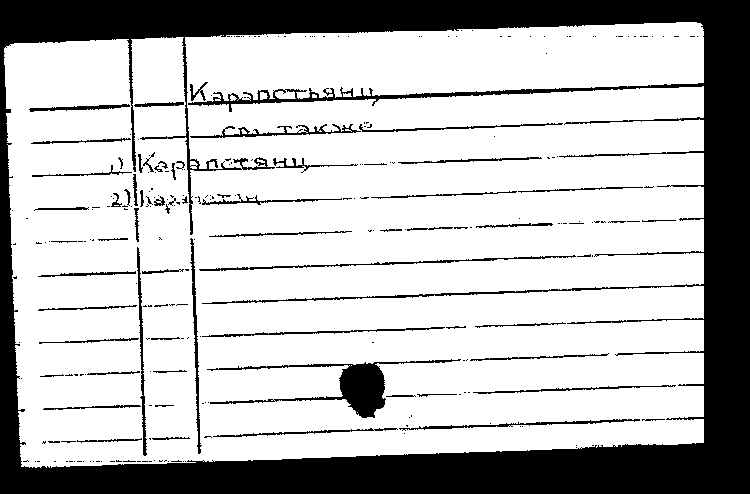 Карапетьянц
см. также
1) Карапетянц
2) Карапетян